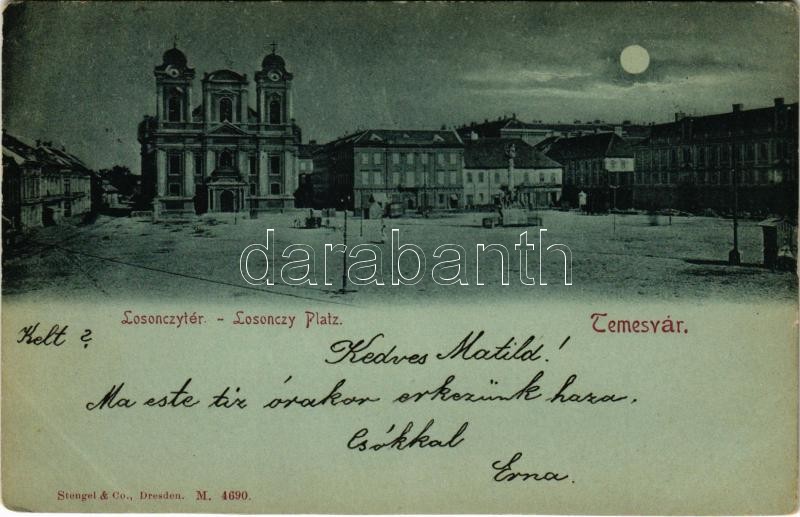 darabanth
Losonczytér. - Losonczy Platz.
Temesvár.
Kelt ?
Kedves Matild!
Ma este tiz órakor erkezünk haza.
Csókkal
Erna.
Stengel & Co., Dresden. M. 4690.